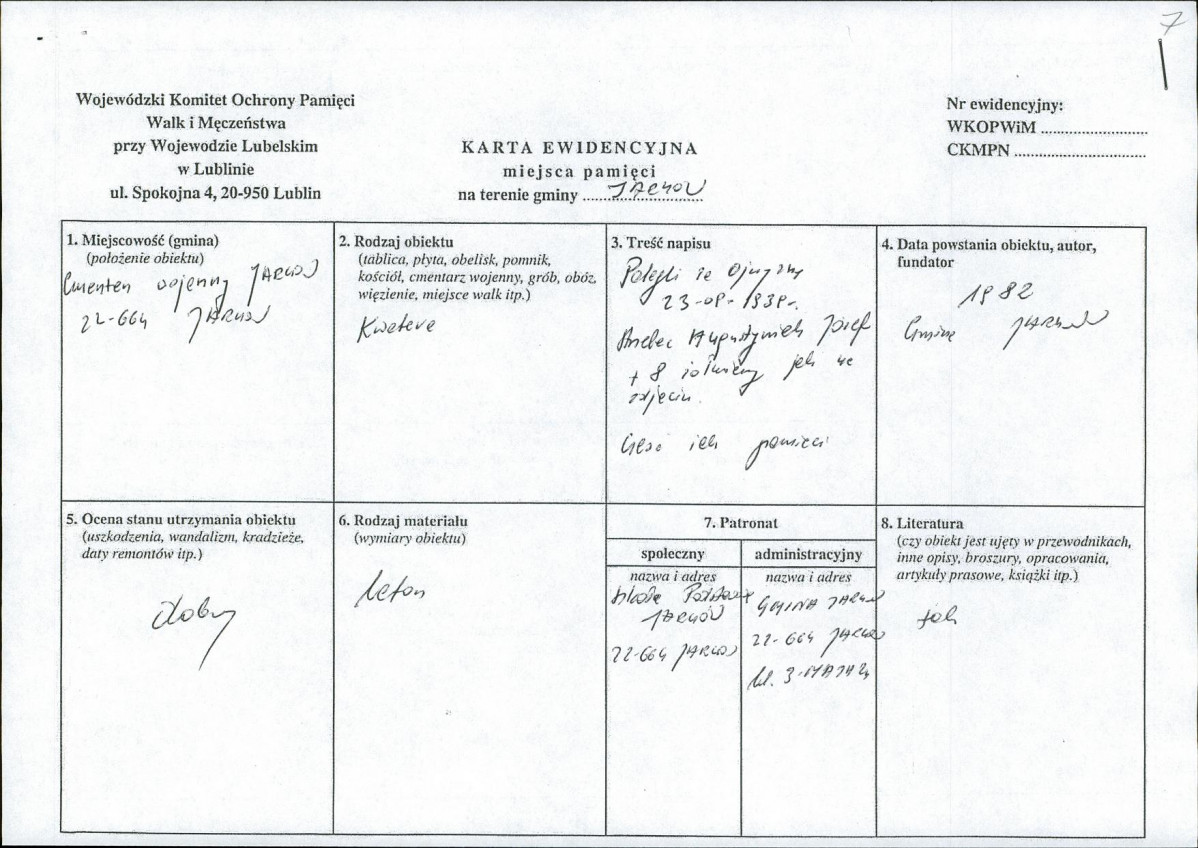 7
Wojewódzki Komitet Ochrony Pamięci
Walk i Męczeństwa
przy Wojewodzie Lubelskim
w Lublinie
ul. Spokojna 4, 20-950 Lublin
KARTA EWIDENCYJNA
miejsca pamięci
na terenie gminy JARCZÓW
Nr ewidencyjny:
WKOPWiM
CKMPN
1. Miejscowość (gmina)
(położenie obiektu)
Cmentarz wojenny JARCZÓW
22-664 JARCZÓW
2. Rodzaj obiektu
(tablica, płyta, obelisk, pomnik,
kościół, cmentarz wojenny, grób, obóz,
więzienie, miejsce walk itp.)
Kwatera
3. Treść napisu
Polegli za Ojczyznę
23-09-1939r.
Strzelec Augustyniak Józef
+ 8 żołnierzy jak na
zdjęciu.
Cześć ich pamięci
4. Data powstania obiektu, autor,
fundator
1982
Gmina JARCZÓW
5. Ocena stanu utrzymania obiektu
(uszkodzenia, wandalizm, kradzieże,
daty remontów itp.)
dobry
6. Rodzaj materiału
(wymiary obiektu)
beton
7. Patronat
społeczny
nazwa i adres
Szkoła Podstaw
JARCZÓW
22-664 JARCZÓW
administracyjny
nazwa i adres
GMINA JARCZÓW
22-664 JARCZÓW
ul. 3-MAJA
8. Literatura
(czy obiekt jest ujęty w przewodnikach,
inne opisy, broszury, opracowania,
artykuły prasowe, książki itp.)
tak